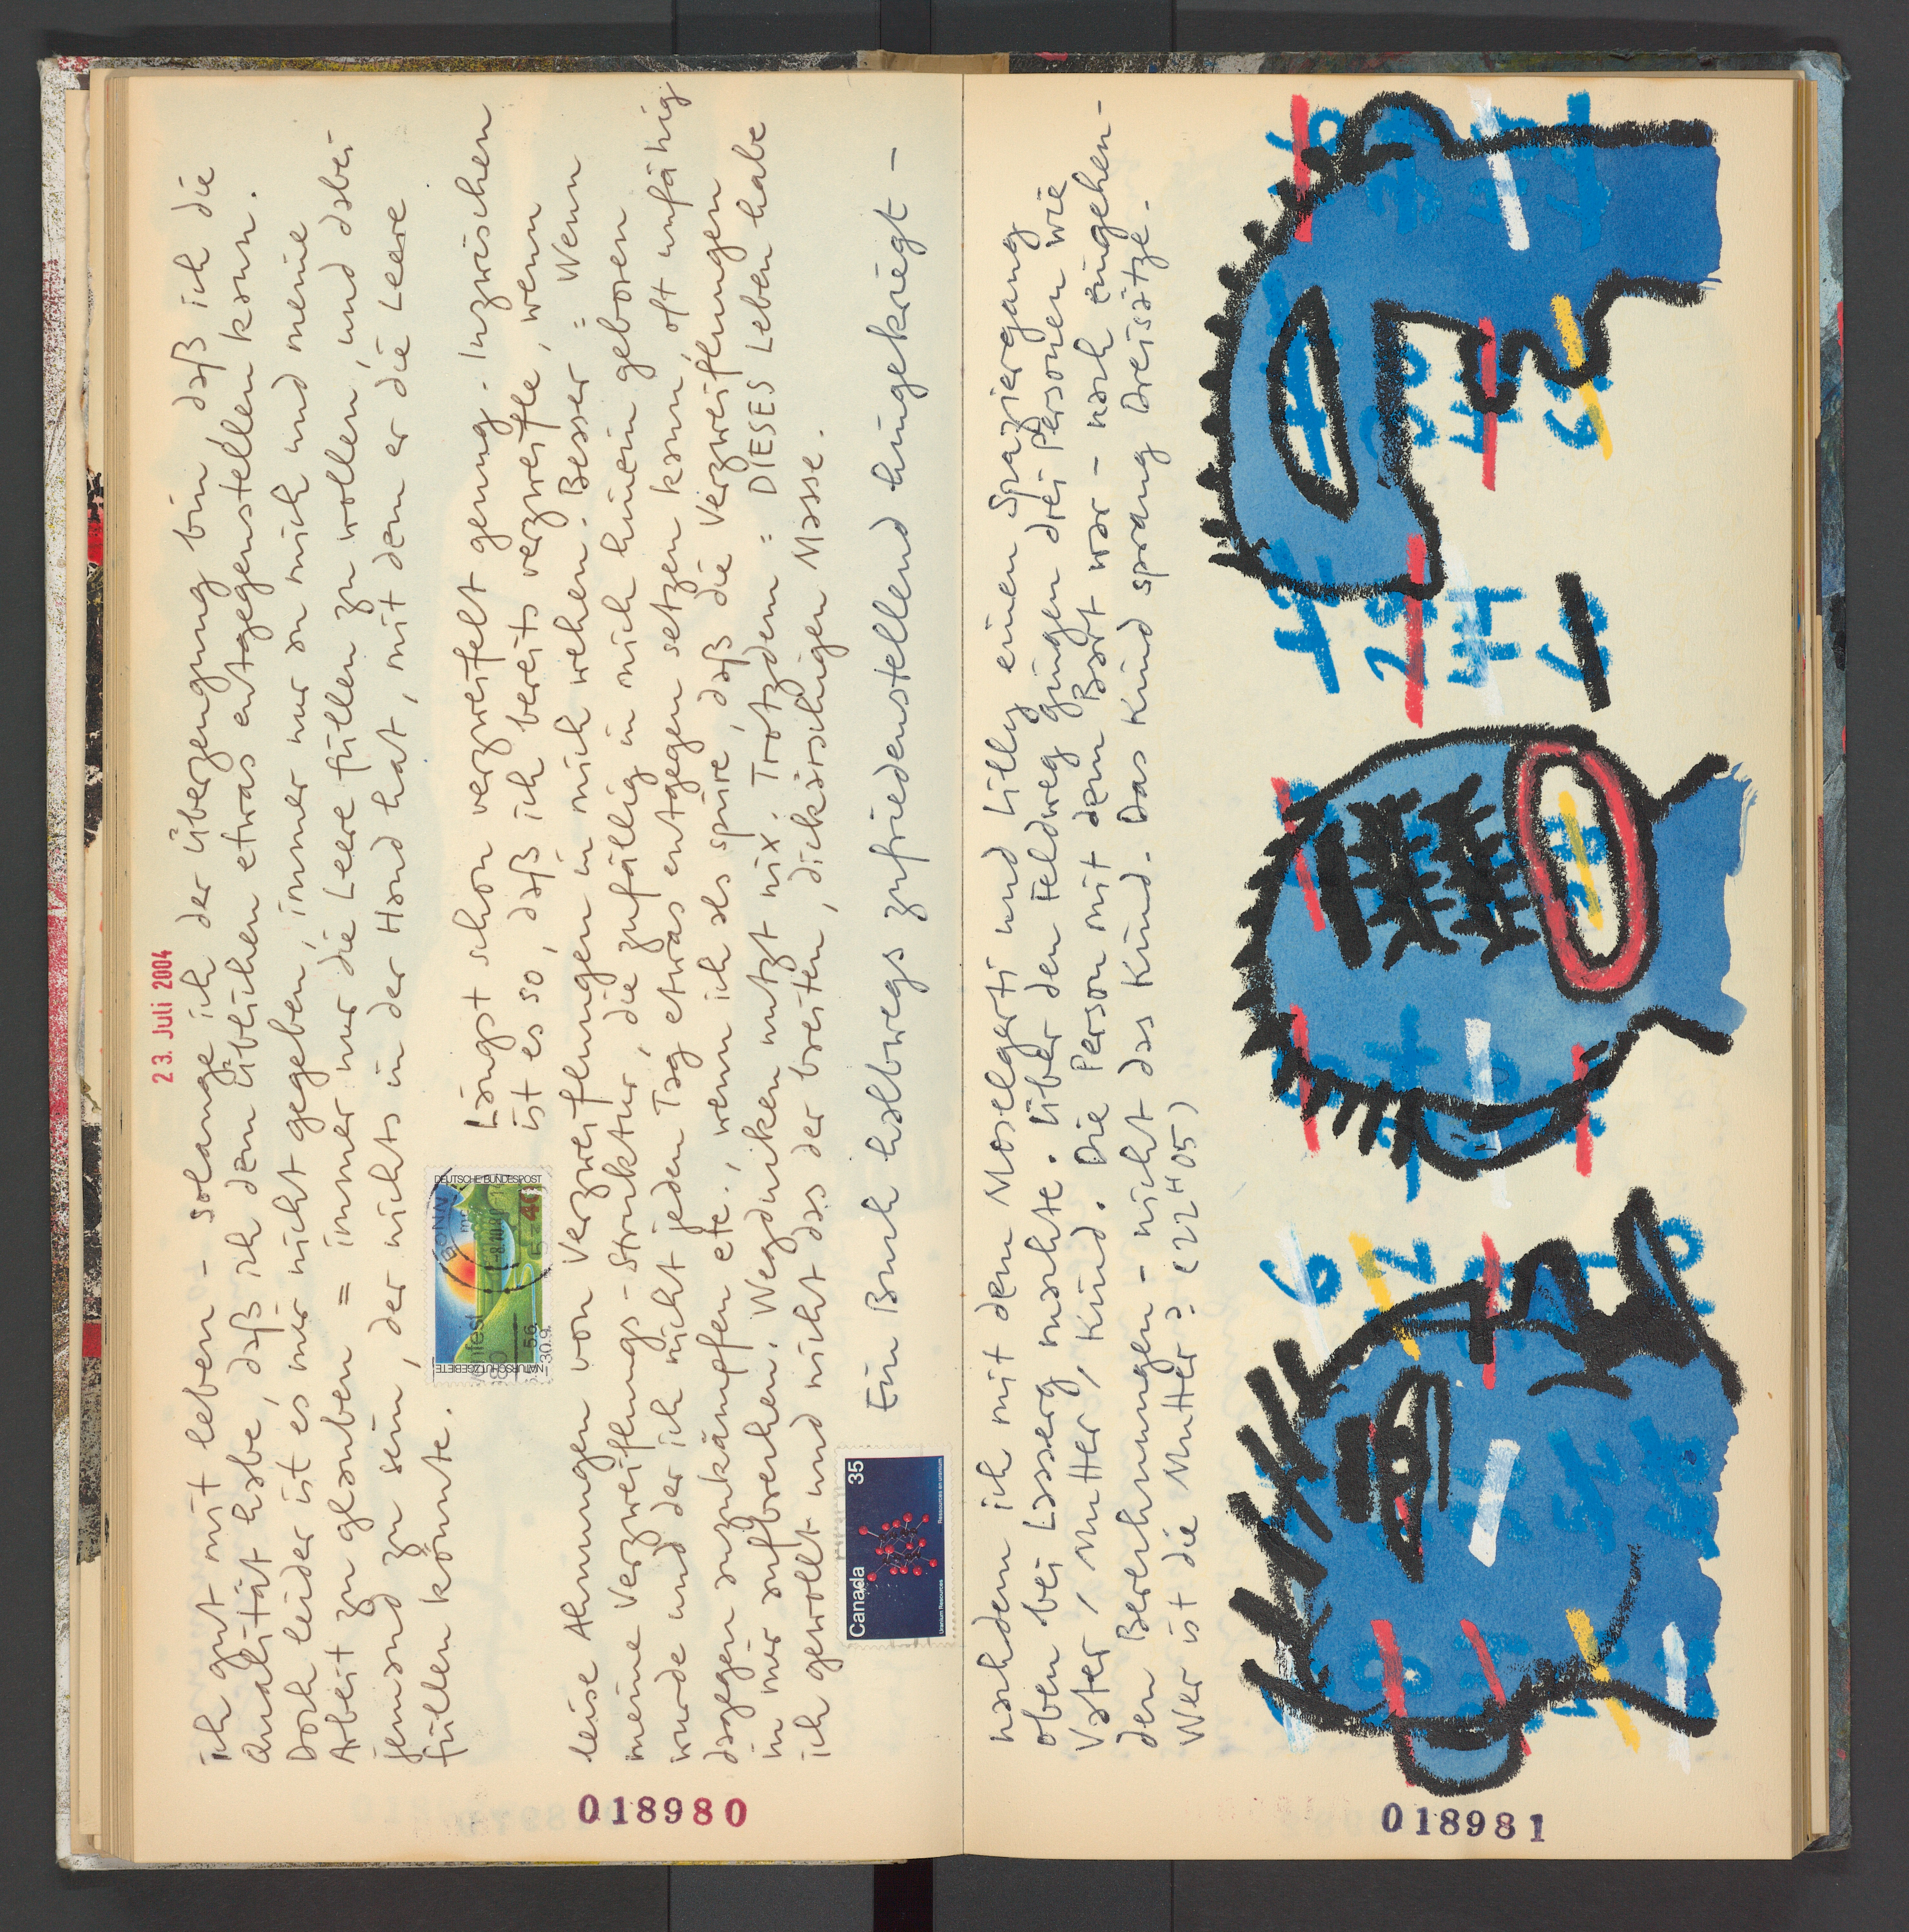 23. Juli 2004
ich gut mit leben - solange ich der Überzeugung bin daß ich die
Qualität habe, daß ich dem Üblichen etwas entgegenstellen kann.
Doch leider ist es mir nicht gegeben, immer nur an mich und meine
Arbeit zu glauben = immer nur die Leere füllen zu wollen, und dabei
jemand zu sein, der nichts in der Hand hat, mit dem er die Leere
füllen könnte.
Längst schon verzweifelt genung. Inzwischen
ist es so, daß ich bereits verzweifle, wenn
leise Ahnungen von Verzweiflungen in mich wehen. Besser = Wenn
meine Verzweiflungs-Struktur, die zufällig in mich hinein geboren
wurde und der ich nicht jeden Tag etwas entgegen setzen kann, oft unfähig
dagegen anzukämpfen etc., wenn ich als spüre, daß die Verzweiflungen
in mir aufbrechen. Wegducken nutzt nix. Trotzdem = DIESES Leben habe
ich gewollt und nicht das der breiten, dickärschigen Masse.
Ein Buch halbwegs zufriedenstellend hingekriegt -
DEUTSCHE BUNDESPOST
NATURSCHUTZGEBIETE
BONN
5.6.
-30.9.
Canada 35
Uranium Resources
Ressources en uranium
018980
nachdem ich mit dem Moselgerti und Lilly einen Spaziergang
oben bei Lasserg machte. Über den Feldweg gingen drei Personen wie
Vater, Mutter, Kind. Die Person mit dem Bart war - nach eingehen-
den Berechnungen - nicht das Kind. Das Kind sprang Dreisätze.
Wer ist die Mutter? (22H05)
018981